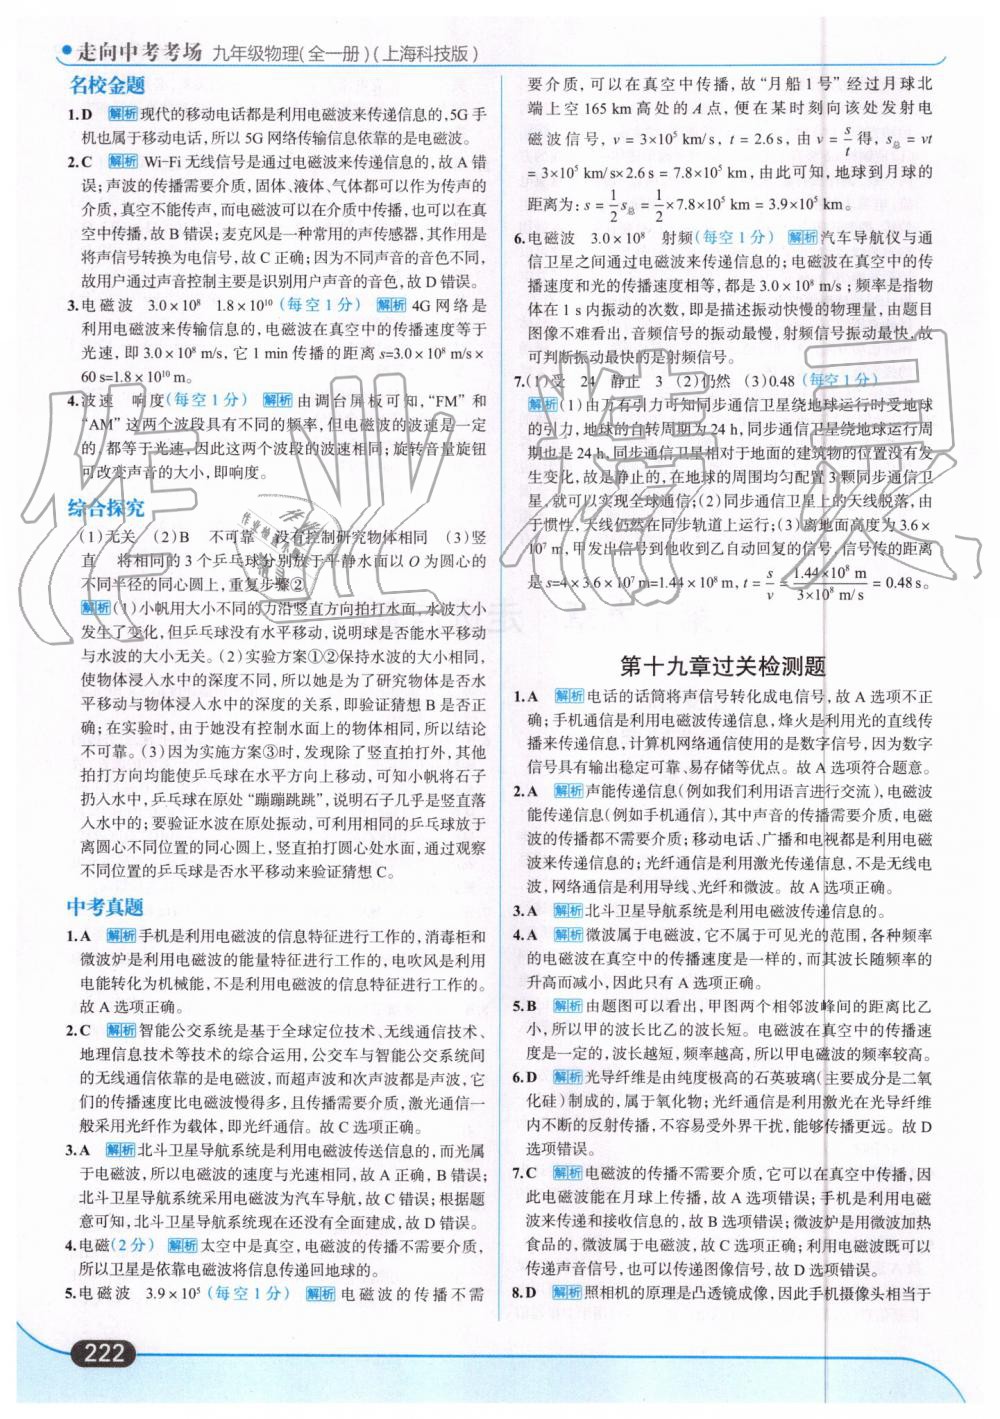 走向中考考场 九年级物理(全一册)(上海科技版)
名校金题
1.D 解析 现代的移动电话都是利用电磁波来传递信息的,5G手
机也属于移动电话,所以5G网络传输信息依靠的是电磁波。
2.C 解析 Wi-Fi无线信号是通过电磁波来传递信息的,故A错
误;声波的传播需要介质,固体、液体、气体都可以作为传声的
介质,真空不能传声,而电磁波可以在介质中传播,也可以在真
空中传播,故B错误;麦克风是一种常用的声传感器,其作用是
将声信号转换为电信号,故C正确;因为不同声音的音色不同,
故用户通过声音控制主要是识别用户声音的音色,故D错误。
3.电磁波 3.0×10⁸ 1.8×10¹⁰(每空1分) 解析 4G网络是
利用电磁波来传输信息的,电磁波在真空中的传播速度等于
光速,即3.0×10⁸ m/s,它1 min传播的距离s=3.0×10⁸ m/s×
60 s=1.8×10¹⁰ m。
4.波速 响度(每空1分) 解析 由调台屏板可知,“FM”和
“AM”这两个波段具有不同的频率,但电磁波的波速是一定
的,都等于光速,因此这两个波段的波速相同;旋转音量旋钮
可改变声音的大小,即响度。
综合探究
(1)无关 (2)B 不可靠 没有控制研究物体相同 (3)竖
直 将相同的3个乒乓球分别放于平静水面以O为圆心的
不同半径的同心圆上,重复步骤②
解析 (1)小帆用大小不同的力沿竖直方向拍打水面,水波大小
发生了变化,但乒乓球没有水平移动,说明球是否能水平移动
与水波的大小无关。(2)实验方案①②保持水波的大小相同,
使物体浸入水中的深度不同,所以她是为了研究物体是否水
平移动与物体浸入水中的深度的关系,即验证猜想B是否正
确;在实验时,由于她没有控制水面上的物体相同,所以结论
不可靠。(3)因为实施方案③时,发现除了竖直拍打外,其他
拍打方向均能使乒乓球在水平方向上移动,可知小帆将石子
扔入水中,乒乓球在原处“蹦蹦跳跳”,说明石子几乎是竖直落
入水中的;要验证水波在原处振动,可利用相同的乒乓球放于
离圆心不同位置的同心圆上,竖直拍打圆心处水面,通过观察
不同位置的乒乓球是否水平移动来验证猜想C。
中考真题
1.A 解析 手机是利用电磁波的信息特征进行工作的,消毒柜和
微波炉是利用电磁波的能量特征进行工作的,电吹风是利用
电能转化为机械能,不是利用电磁波的信息特征进行工作的。
故A选项正确。
2.C 解析 智能公交系统是基于全球定位技术、无线通信技术、
地理信息技术等技术的综合运用,公交车与智能公交系统间
的无线通信依靠的是电磁波,而超声波和次声波都是声波,它
们的传播速度比电磁波慢得多,且传播需要介质,激光通信一
般采用光纤作为载体,即光纤通信。故C选项正确。
3.A 解析 北斗卫星导航系统是利用电磁波传送信息的,而光属
于电磁波,所以电磁波的速度与光速相同,故A正确,B错误;
北斗卫星导航系统采用电磁波为汽车导航,故C错误;根据题
意可知,北斗卫星导航系统现在还没有全面建成,故D错误。
4.电磁(2分) 解析 太空中是真空,电磁波的传播不需要介质,
所以卫星是依靠电磁波将信息传递回地球的。
5.电磁波 3.9×10⁵(每空1分) 解析 电磁波的传播不需
要介质,可以在真空中传播,故“月船1号”经过月球北
端上空165 km高处的A点,便在某时刻向该处发射电
磁波信号,v=3×10⁵ km/s,t=2.6 s,由v=s/t得,s总=vt
=3×10⁵ km/s×2.6 s=7.8×10⁵ km,由此可知,地球到月球的
距离为:s=1/2 s总=1/2×7.8×10⁵ km=3.9×10⁵ km。
6.电磁波 3.0×10⁸ 射频(每空1分) 解析 汽车导航仪与通
信卫星之间通过电磁波来传递信息的;电磁波在真空中的传
播速度和光的传播速度相等,都是3.0×10⁸ m/s;频率是指物
体在1 s内振动的次数,即是描述振动快慢的物理量,由题目
图像不难看出,音频信号的振动最慢,射频信号振动最快,故
可判断振动最快的是射频信号。
7.(1)受 24 静止 3 (2)仍然 (3)0.48(每空1分)
解析 (1)由万有引力可知同步通信卫星绕地球运行时受地球
的引力,地球的自转周期为24 h,同步通信卫星绕地球运行周
期也是24 h,同步通信卫星相对于地面的建筑物的位置没有发
生变化,故是静止的,在地球的周围均匀配置3颗同步通信卫
星,就可以实现全球通信;(2)同步通信卫星上的天线脱落,由
于惯性,天线仍然在同步轨道上运行;(3)离地面高度为3.6×
10⁷ m,甲发出信号到他收到乙自动回复的信号,信号传的距离
是s=4×3.6×10⁷ m=1.44×10⁸ m,t=s/v=1.44×10⁸ m/3×10⁸ m/s=0.48 s。
第十九章过关检测题
1.A 解析 电话的话筒将声信号转化成电信号,故A选项不正
确;手机通信是利用电磁波传递信息,烽火是利用光的直线传
播来传递信息,计算机网络通信使用的是数字信号,因为数字
信号具有输出稳定可靠、易存储等优点。故A选项符合题意。
2.A 解析 声能传递信息(例如我们利用语言进行交流),电磁波
能传递信息(例如手机通信),其中声音的传播需要介质,电磁
波的传播都不需要介质;移动电话、广播和电视都是利用电磁
波来传递信息的;光纤通信是利用激光传递信息,不是无线电
波,网络通信是利用导线、光纤和微波。故A选项正确。
3.A 解析 北斗卫星导航系统是利用电磁波传递信息的。
4.A 解析 微波属于电磁波,它不属于可见光的范围,各种频率
的电磁波在真空中的传播速度是一样的,而其波长随频率的
升高而减小,因此只有A选项正确。
5.B 解析 由题图可以看出,甲图两个相邻波峰间的距离比乙
小,所以甲的波长比乙的波长短。电磁波在真空中的传播速
度是一定的,波长越短,频率越高,所以甲电磁波的频率较高。
6.D 解析 光导纤维是由纯度极高的石英玻璃(主要成分是二氧
化硅)制成的,属于氧化物;光纤通信是利用激光在光导纤维
内不断的反射传播,不容易受外界干扰,能够传播更远。故D
选项错误。
7.C 解析 电磁波的传播不需要介质,它可以在真空中传播,因
此电磁波能在月球上传播,故A选项错误;手机是利用电磁
波来传递和接收信息的,故B选项错误;微波炉是用微波加热
食品的,微波属于电磁波,故C选项正确;利用电磁波既可以
传递声音信号,也可以传递图像信号,故D选项错误。
8.D 解析 照相机的原理是凸透镜成像,因此手机摄像头相当于
222
作业精灵